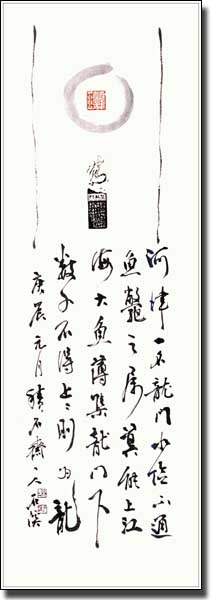 河津一名龍門水險不通
魚鱉之屬莫能上江
海大魚薄集龍門下
數千不得上々則為龍
庚辰元月積石齋